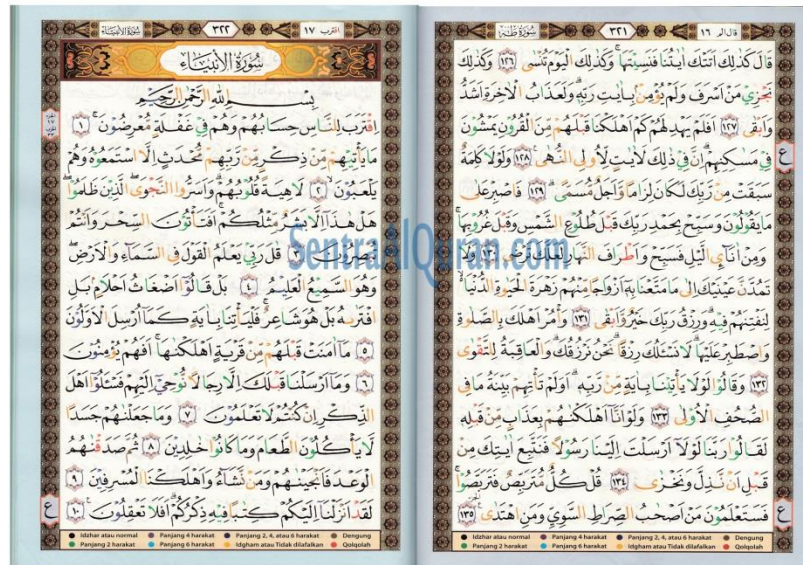 قال الم ١٦
٣٢١
سورة طه ٢٠
قَالَ كَذٰلِكَ اَتَتْكَ اٰيٰتُنَا فَنَسِيْتَهَاۚ وَكَذٰلِكَ الْيَوْمَ تُنْسٰى ١٢٦ وَكَذٰلِكَ
نَجْزِيْ مَنْ اَسْرَفَ وَلَمْ يُؤْمِنْۢ بِاٰيٰتِ رَبِّهٖۗ وَلَعَذَابُ الْاٰخِرَةِ اَشَدُّ
وَاَبْقٰى ١٢٧ اَفَلَمْ يَهْدِ لَهُمْ كَمْ اَهْلَكْنَا قَبْلَهُمْ مِّنَ الْقُرُوْنِ يَمْشُوْنَ
فِيْ مَسٰكِنِهِمْۗ اِنَّ فِيْ ذٰلِكَ لَاٰيٰتٍ لِّاُولِى النُّهٰى ١٢٨ وَلَوْلَا كَلِمَةٌ
سَبَقَتْ مِنْ رَّبِّكَ لَكَانَ لِزَامًا وَّاَجَلٌ مُّسَمًّى ١٢٩ فَاصْبِرْ عَلٰى
مَا يَقُوْلُوْنَ وَسَبِّحْ بِحَمْدِ رَبِّكَ قَبْلَ طُلُوْعِ الشَّمْسِ وَقَبْلَ غُرُوْبِهَاۚ
وَمِنْ اٰنَاۤئِ الَّيْلِ فَسَبِّحْ وَاَطْرَافَ النَّهَارِ لَعَلَّكَ تَرْضٰى ١٣٠ وَلَا
تَمُدَّنَّ عَيْنَيْكَ اِلٰى مَا مَتَّعْنَا بِهٖٓ اَزْوَاجًا مِّنْهُمْ زَهْرَةَ الْحَيٰوةِ الدُّنْيَا
لِنَفْتِنَهُمْ فِيْهِۗ وَرِزْقُ رَبِّكَ خَيْرٌ وَّاَبْقٰى ١٣١ وَأْمُرْ اَهْلَكَ بِالصَّلٰوةِ
وَاصْطَبِرْ عَلَيْهَاۗ لَا نَسْـَٔلُكَ رِزْقًاۗ نَحْنُ نَرْزُقُكَۗ وَالْعَاقِبَةُ لِلتَّقْوٰى
١٣٢ وَقَالُوْا لَوْلَا يَأْتِيْنَا بِاٰيَةٍ مِّنْ رَّبِّهٖۗ اَوَلَمْ تَأْتِهِمْ بَيِّنَةُ مَا فِى
الصُّحُفِ الْاُوْلٰى ١٣٣ وَلَوْ اَنَّآ اَهْلَكْنٰهُمْ بِعَذَابٍ مِّنْ قَبْلِهٖ
لَقَالُوْا رَبَّنَا لَوْلَآ اَرْسَلْتَ اِلَيْنَا رَسُوْلًا فَنَتَّبِعَ اٰيٰتِكَ مِنْ
قَبْلِ اَنْ نَّذِلَّ وَنَخْزٰى ١٣٤ قُلْ كُلٌّ مُّتَرَبِّصٌ فَتَرَبَّصُوْاۚ
فَسَتَعْلَمُوْنَ مَنْ اَصْحٰبُ الصِّرَاطِ السَّوِيِّ وَمَنِ اهْتَدٰى ١٣٥
ع
ع
Idzhar atau normal Panjang 4 harakat Panjang 2, 4, atau 6 harakat Dengung
Panjang 2 harakat Panjang 6 harakat Idgham atau Tidak dilafalkan Qolqolah
اقترب ١٧
٣٢٢
سورة الانبياء
سُوْرَةُ الْاَنْبِيَاءِ
بِسْمِ اللّٰهِ الرَّحْمٰنِ الرَّحِيْمِ
اِقْتَرَبَ لِلنَّاسِ حِسَابُهُمْ وَهُمْ فِيْ غَفْلَةٍ مُّعْرِضُوْنَۚ ١
مَا يَأْتِيْهِمْ مِّنْ ذِكْرٍ مِّنْ رَّبِّهِمْ مُّحْدَثٍ اِلَّا اسْتَمَعُوْهُ وَهُمْ
يَلْعَبُوْنَۙ ٢ لَاهِيَةً قُلُوْبُهُمْۗ وَاَسَرُّوا النَّجْوَى الَّذِيْنَ ظَلَمُوْاۖ
هَلْ هٰذَآ اِلَّا بَشَرٌ مِّثْلُكُمْۚ اَفَتَأْتُوْنَ السِّحْرَ وَاَنْتُمْ
تُبْصِرُوْنَ ٣ قٰلَ رَبِّيْ يَعْلَمُ الْقَوْلَ فِى السَّمَاۤءِ وَالْاَرْضِۖ
وَهُوَ السَّمِيْعُ الْعَلِيْمُ ٤ بَلْ قَالُوْٓا اَضْغَاثُ اَحْلَامٍۢ بَلِ
افْتَرٰىهُ بَلْ هُوَ شَاعِرٌۚ فَلْيَأْتِنَا بِاٰيَةٍ كَمَآ اُرْسِلَ الْاَوَّلُوْنَ
٥ مَآ اٰمَنَتْ قَبْلَهُمْ مِّنْ قَرْيَةٍ اَهْلَكْنٰهَاۚ اَفَهُمْ يُؤْمِنُوْنَ
٦ وَمَآ اَرْسَلْنَا قَبْلَكَ اِلَّا رِجَالًا نُّوْحِيْٓ اِلَيْهِمْ فَسْـَٔلُوْٓا اَهْلَ
الذِّكْرِ اِنْ كُنْتُمْ لَا تَعْلَمُوْنَ ٧ وَمَا جَعَلْنٰهُمْ جَسَدًا
لَّا يَأْكُلُوْنَ الطَّعَامَ وَمَا كَانُوْا خٰلِدِيْنَ ٨ ثُمَّ صَدَقْنٰهُمُ
الْوَعْدَ فَاَنْجَيْنٰهُمْ وَمَنْ نَّشَاۤءُ وَاَهْلَكْنَا الْمُسْرِفِيْنَ ٩
لَقَدْ اَنْزَلْنَآ اِلَيْكُمْ كِتٰبًا فِيْهِ ذِكْرُكُمْۗ اَفَلَا تَعْقِلُوْنَ ١٠
ع
Idzhar atau normal Panjang 4 harakat Panjang 2, 4, atau 6 harakat Dengung
Panjang 2 harakat Panjang 6 harakat Idgham atau Tidak dilafalkan Qolqolah
SentraAlQuran.com